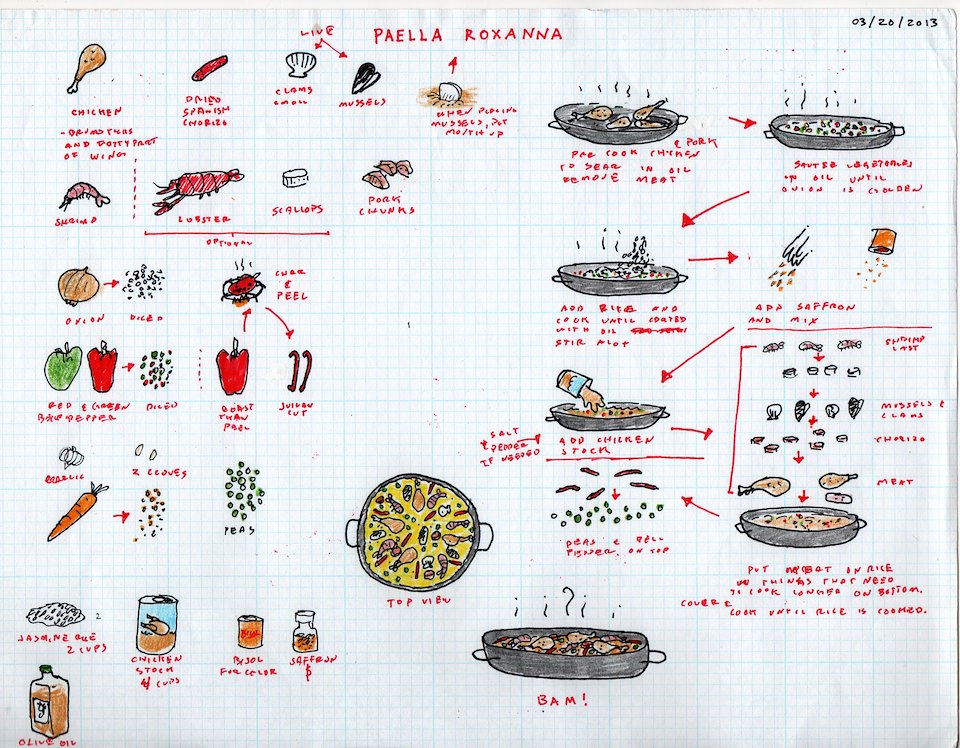 03/20/2013
PAELLA ROXANNA
LIVE
CHICKEN
- DRUMSTICKS
AND DOTTY PART
OF WING
DRIED
SPANISH
CHORIZO
CLAMS
SMALL
MUSSELS
WHEN PLACING
MUSSELS, PUT
MOUTH UP
SHRIMP
LOBSTER
SCALLOPS
OPTIONAL
PORK
CHUNKS
ONION
DICED
CHAR
&
PEEL
RED & GREEN
BELL PEPPER
DICED
ROAST
THAN
PEEL
JULIAN
CUT
GARLIC
2 CLOVES
PEAS
JASMINE RICE
2 CUPS
CHICKEN
STOCK
4 CUPS
BIJOL
FOR COLOR
SAFFRON
$
OLIVE OIL
TOP VIEW
& PORK
PRE COOK CHICKEN
TO SEAR IN OIL
REMOVE MEAT
SAUTEE VEGETABLES
IN OIL UNTIL
ONION IS GOLDEN
ADD RICE AND
COOK UNTIL COATED
WITH OIL
STIR ALOT
ADD SAFFRON
AND MIX
SALT
& PEPPER
IF NEEDED
ADD CHICKEN
STOCK
SHRIMP
LAST
MUSSELS &
CLAMS
CHORIZO
MEAT
PUT MEAT ON RICE
THINGS THAT NEED
TO COOK LONGER ON BOTTOM.
COVER &
COOK UNTIL RICE IS COOKED.
PEAS & BELL
PEPPER ON TOP
BAM!